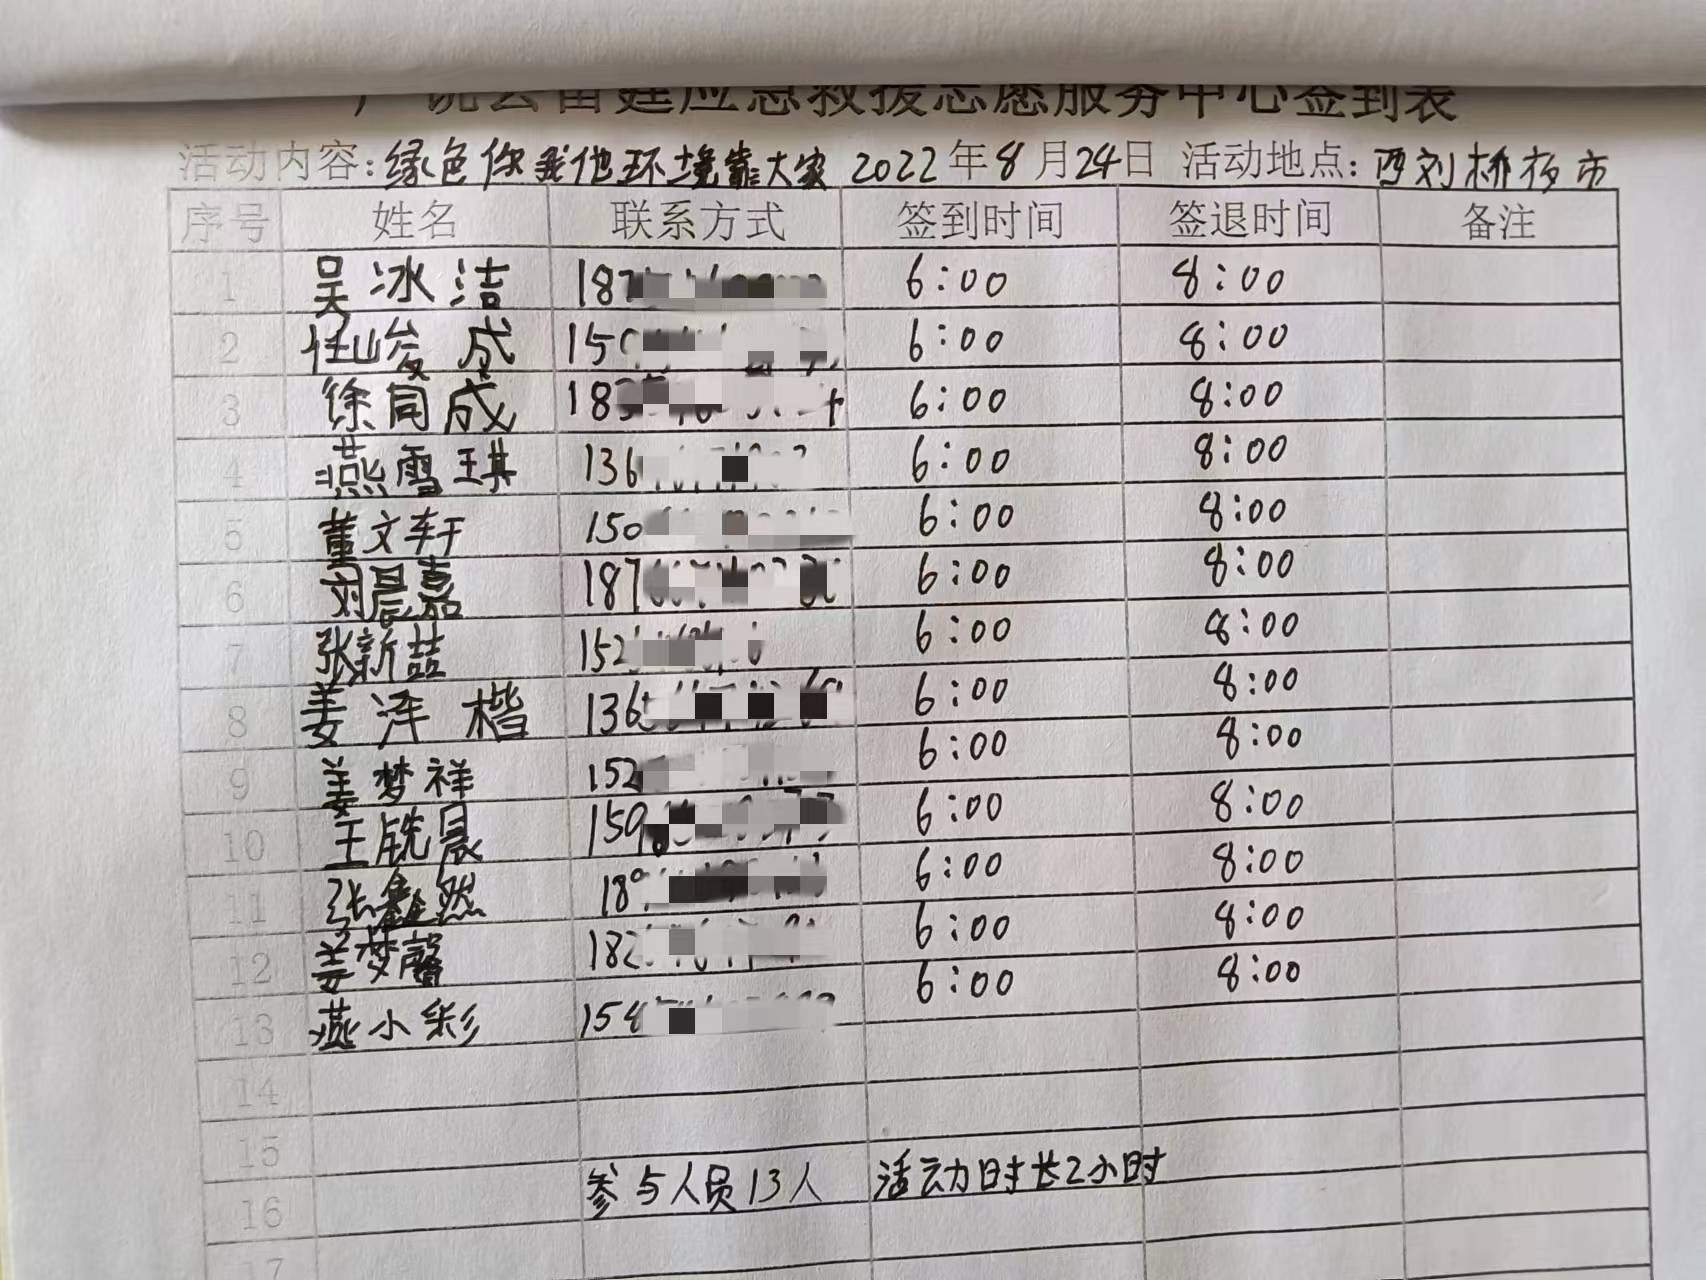 雷廷应急救援志愿服务中心签到表
活动内容:绿色你我他环境靠大家 2022年8月24日 活动地点:西刘桥夜市
序号 姓名 联系方式 签到时间 签退时间 备注
1 吴冰洁 187 6:00 8:00
2 任峻成 150 6:00 8:00
3 徐同成 183 6:00 8:00
4 燕雪琪 136 6:00 8:00
5 董文轩 150 6:00 8:00
6 刘晨嘉 187 6:00 8:00
7 张新喆 152 6:00 8:00
8 姜泽楷 136 6:00 8:00
9 姜梦祥 152 6:00 8:00
10 王铣晨 159 6:00 8:00
11 张鑫然 18 6:00 8:00
12 姜梦馨 182 6:00 8:00
13 燕小彩 158 6:00 8:00
14
15
16 参与人员13人 活动时长2小时
17